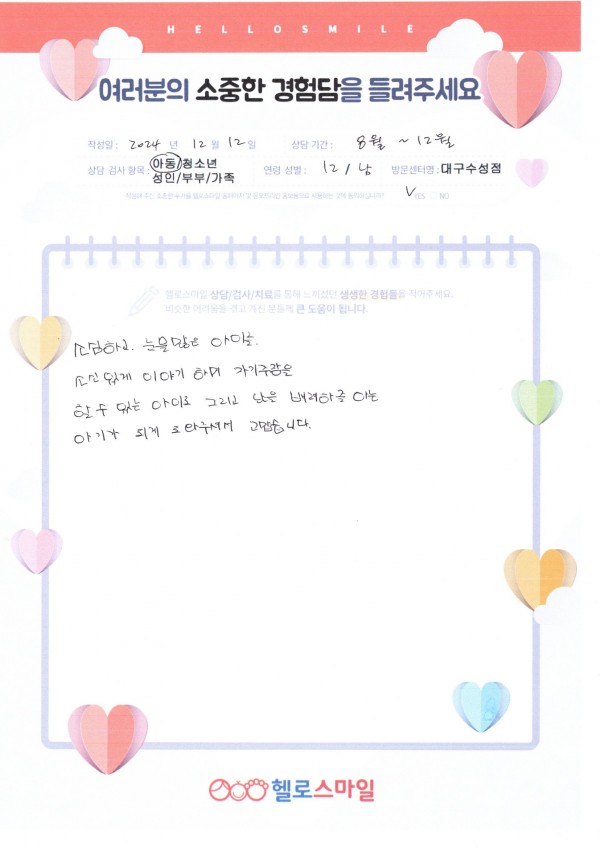 HELLOSMILE
여러분의 소중한 경험담을 들려주세요
작성일 : 2024 년 12 월 12 일 상담 기간 : 8월 ~ 12월
상담 검사 항목 : 아동/청소년 성인/부부/가족 연령 성별 : 12 / 남 방문센터명 : 대구수성점
작성해 주신 소중한 후기를 헬로스마일 홈페이지 및 온오프라인 홍보용으로 사용하는 것에 동의하십니까? V YES NO
헬로스마일 상담/검사/치료를 통해 느끼셨던 생생한 경험들을 적어주세요.
비슷한 어려움을 겪고 계신 분들께 큰 도움이 됩니다.
소심하고. 눈물많은 아이를.
소신있게 이야기 하며 자기주장은
할 수 있는 아이로 그리고 남은 배려하줄 아는
아이가 되게 도와주셔서 고맙습니다.
헬로스마일